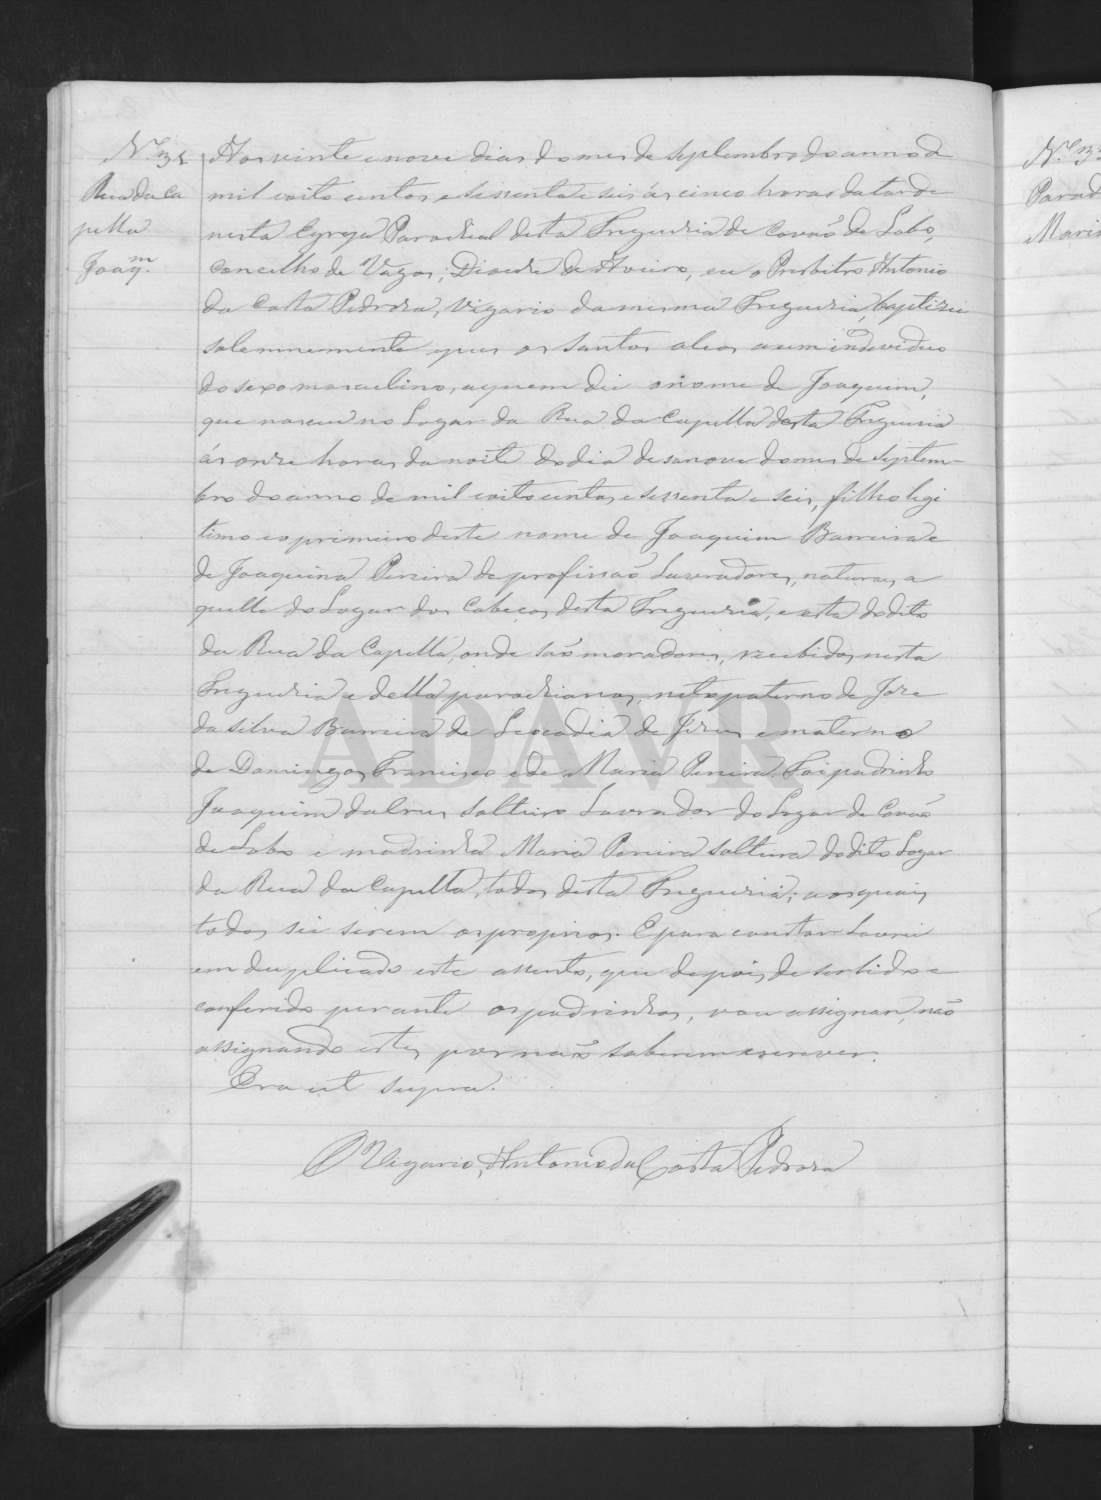 Nº 31
Rua da Ca
pella
Joaqm.
Aos vinte e nove dias do mes de Septembro do anno de
mil oito centos e sessenta e seis ás cinco horas da tarde
nesta Egreja Parochial desta Freguesia de Covão de Lobo,
Concelho de Vagos, Diocese de Aveiro, eu o Presbitro Antonio
da Costa Pedroza, Vigario da mesma Freguesia, baptizei
solemnemente e puz os Santos oleos a um individuo
do sexo masculino, a quem dei o nome de Joaquim,
que nasceu no Logar da Rua da Capella desta Freguesia
ás onze horas da noite do dia desanove do mes de Septem-
bro do anno de mil oito centos e sessenta e seis, filho legi
timo e o primeiro deste nome de Joaquim Barreira e
de Joaquina Pereira de profissão Lavradores, naturaes a
quelle do Logar dos Cabeços desta Freguesia, e esta do dito
da Rua da Capella, onde são moradores, recebidos nesta
Freguesia e della parochianos, neto paterno de Jose
da Silva Barreira de Leocadia de Jesus e materno
de Domingos Francisco e de Maria Pereira. Foi padrinho
Joaquim da Cruz solteiro Lavrador do Logar de Covão
de Lobo e madrinha Maria Pereira solteira do dito Logar
da Rua da Capella, todos desta Freguesia; aos quaes
todos sei serem os proprios. E para constar lavrei
em duplicado este assento, que depois de ser lido e
conferido perante os padrinhos, vou assignar, não
assignando estes por não saberem escrever.
Era ut supra.
O Vigario, Antonio da Costa Pedroza
ADAVR
Nº 3
Parad
Mari